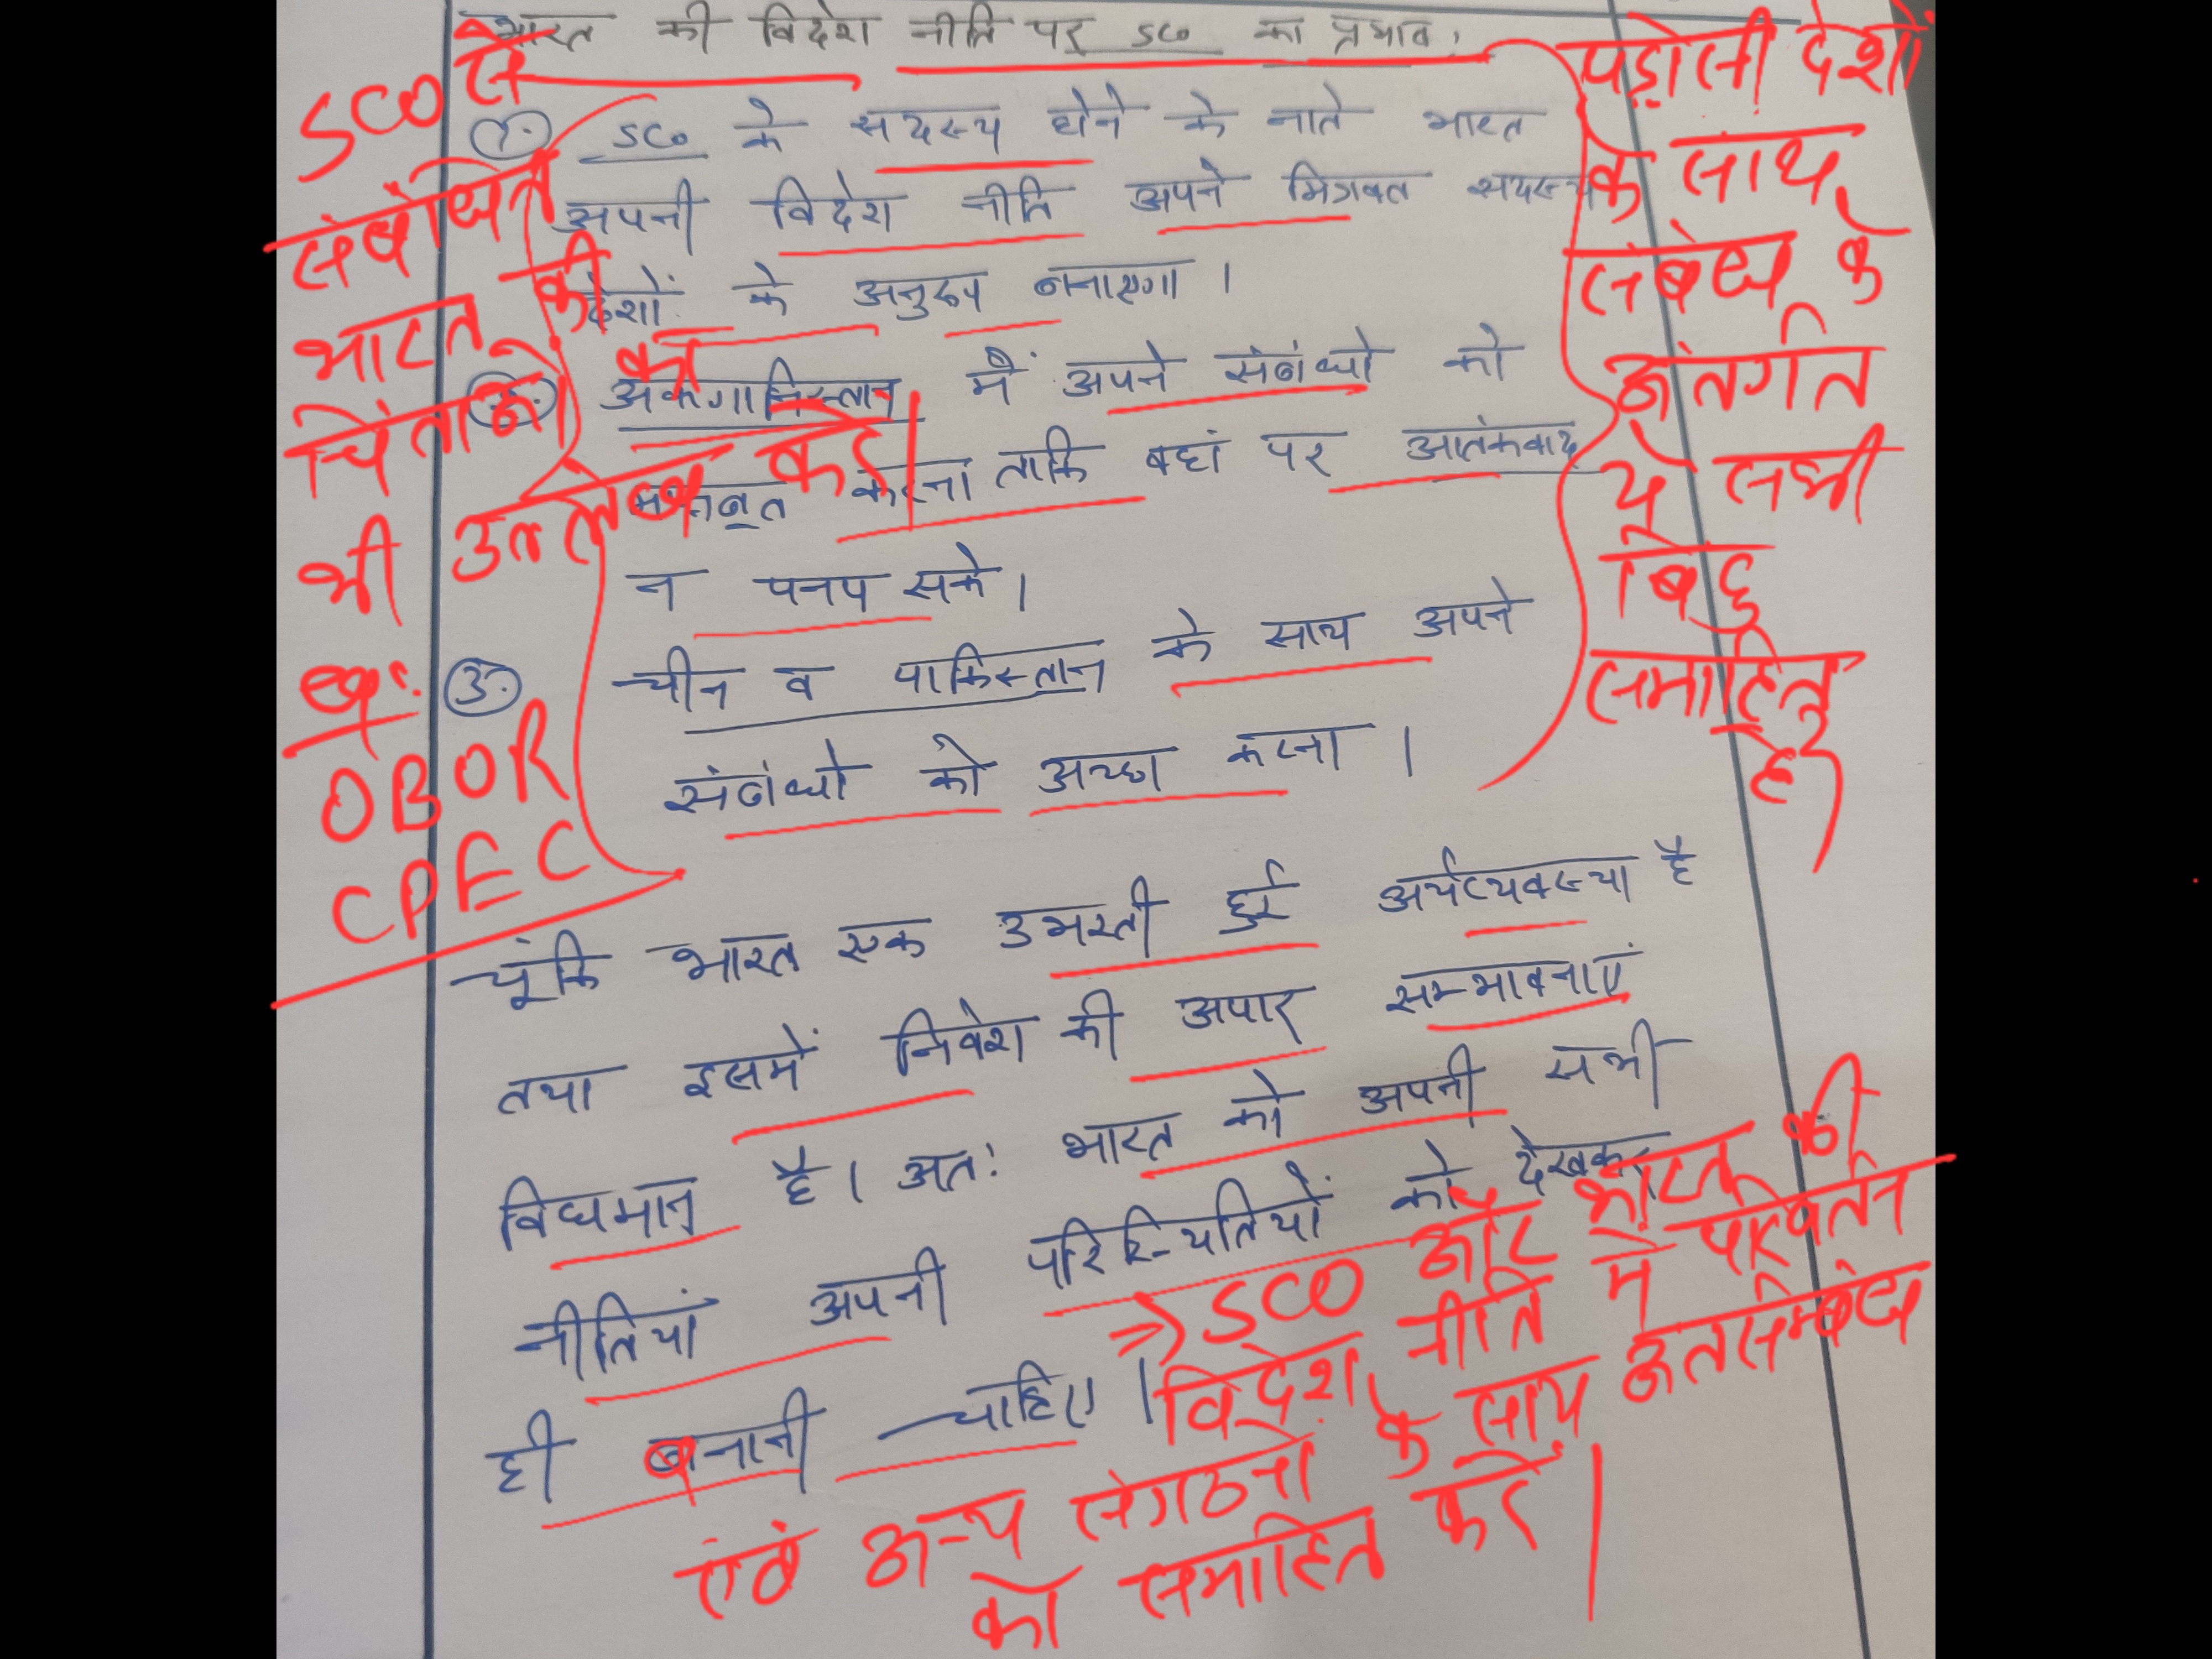 भारत की विदेश नीति पर SCO का प्रभाव,
1. SCO के सदस्य होने के नाते भारत
अपनी विदेश नीति अपने मित्रवत सदस्य
देशों के अनुरूप बनाएगा।
2. अफगानिस्तान में अपने संबंधो को
मजबूत करना ताकि वहां पर आतंकवाद
न पनप सके।
3. चीन व पाकिस्तान के साथ अपने
संबंधो को अच्छा करना।
चूंकि भारत एक उभरती हुई अर्थव्यवस्था है
तथा इसमें निवेश की अपार सम्भावनाएं
विधमान है। अतः भारत को अपनी सभी
नीतियां अपनी परिस्थितियों को देखकर
ही बनानी चाहिए।
SCO से
संबंधित
भारत की
चिंताओं का
भी उल्लेख करें।
OBOR
CPEC
पड़ोसी देशों
के साथ
संबंध के
अंतर्गत
ये सभी
बिंदु
समाहित
है
→ SCO और भारत की
विदेश नीति में परिवर्तन
एवं अन्य संगठनों के साथ अंतर्सम्बंध
को समाहित करें।